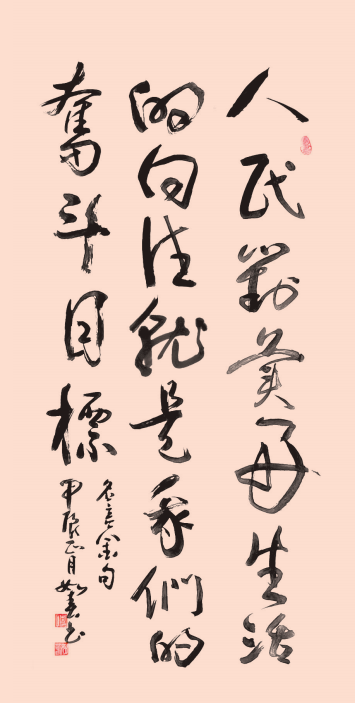 人民對美好生活
的向往就是我們的
奮斗目標
名言金句
甲辰正月